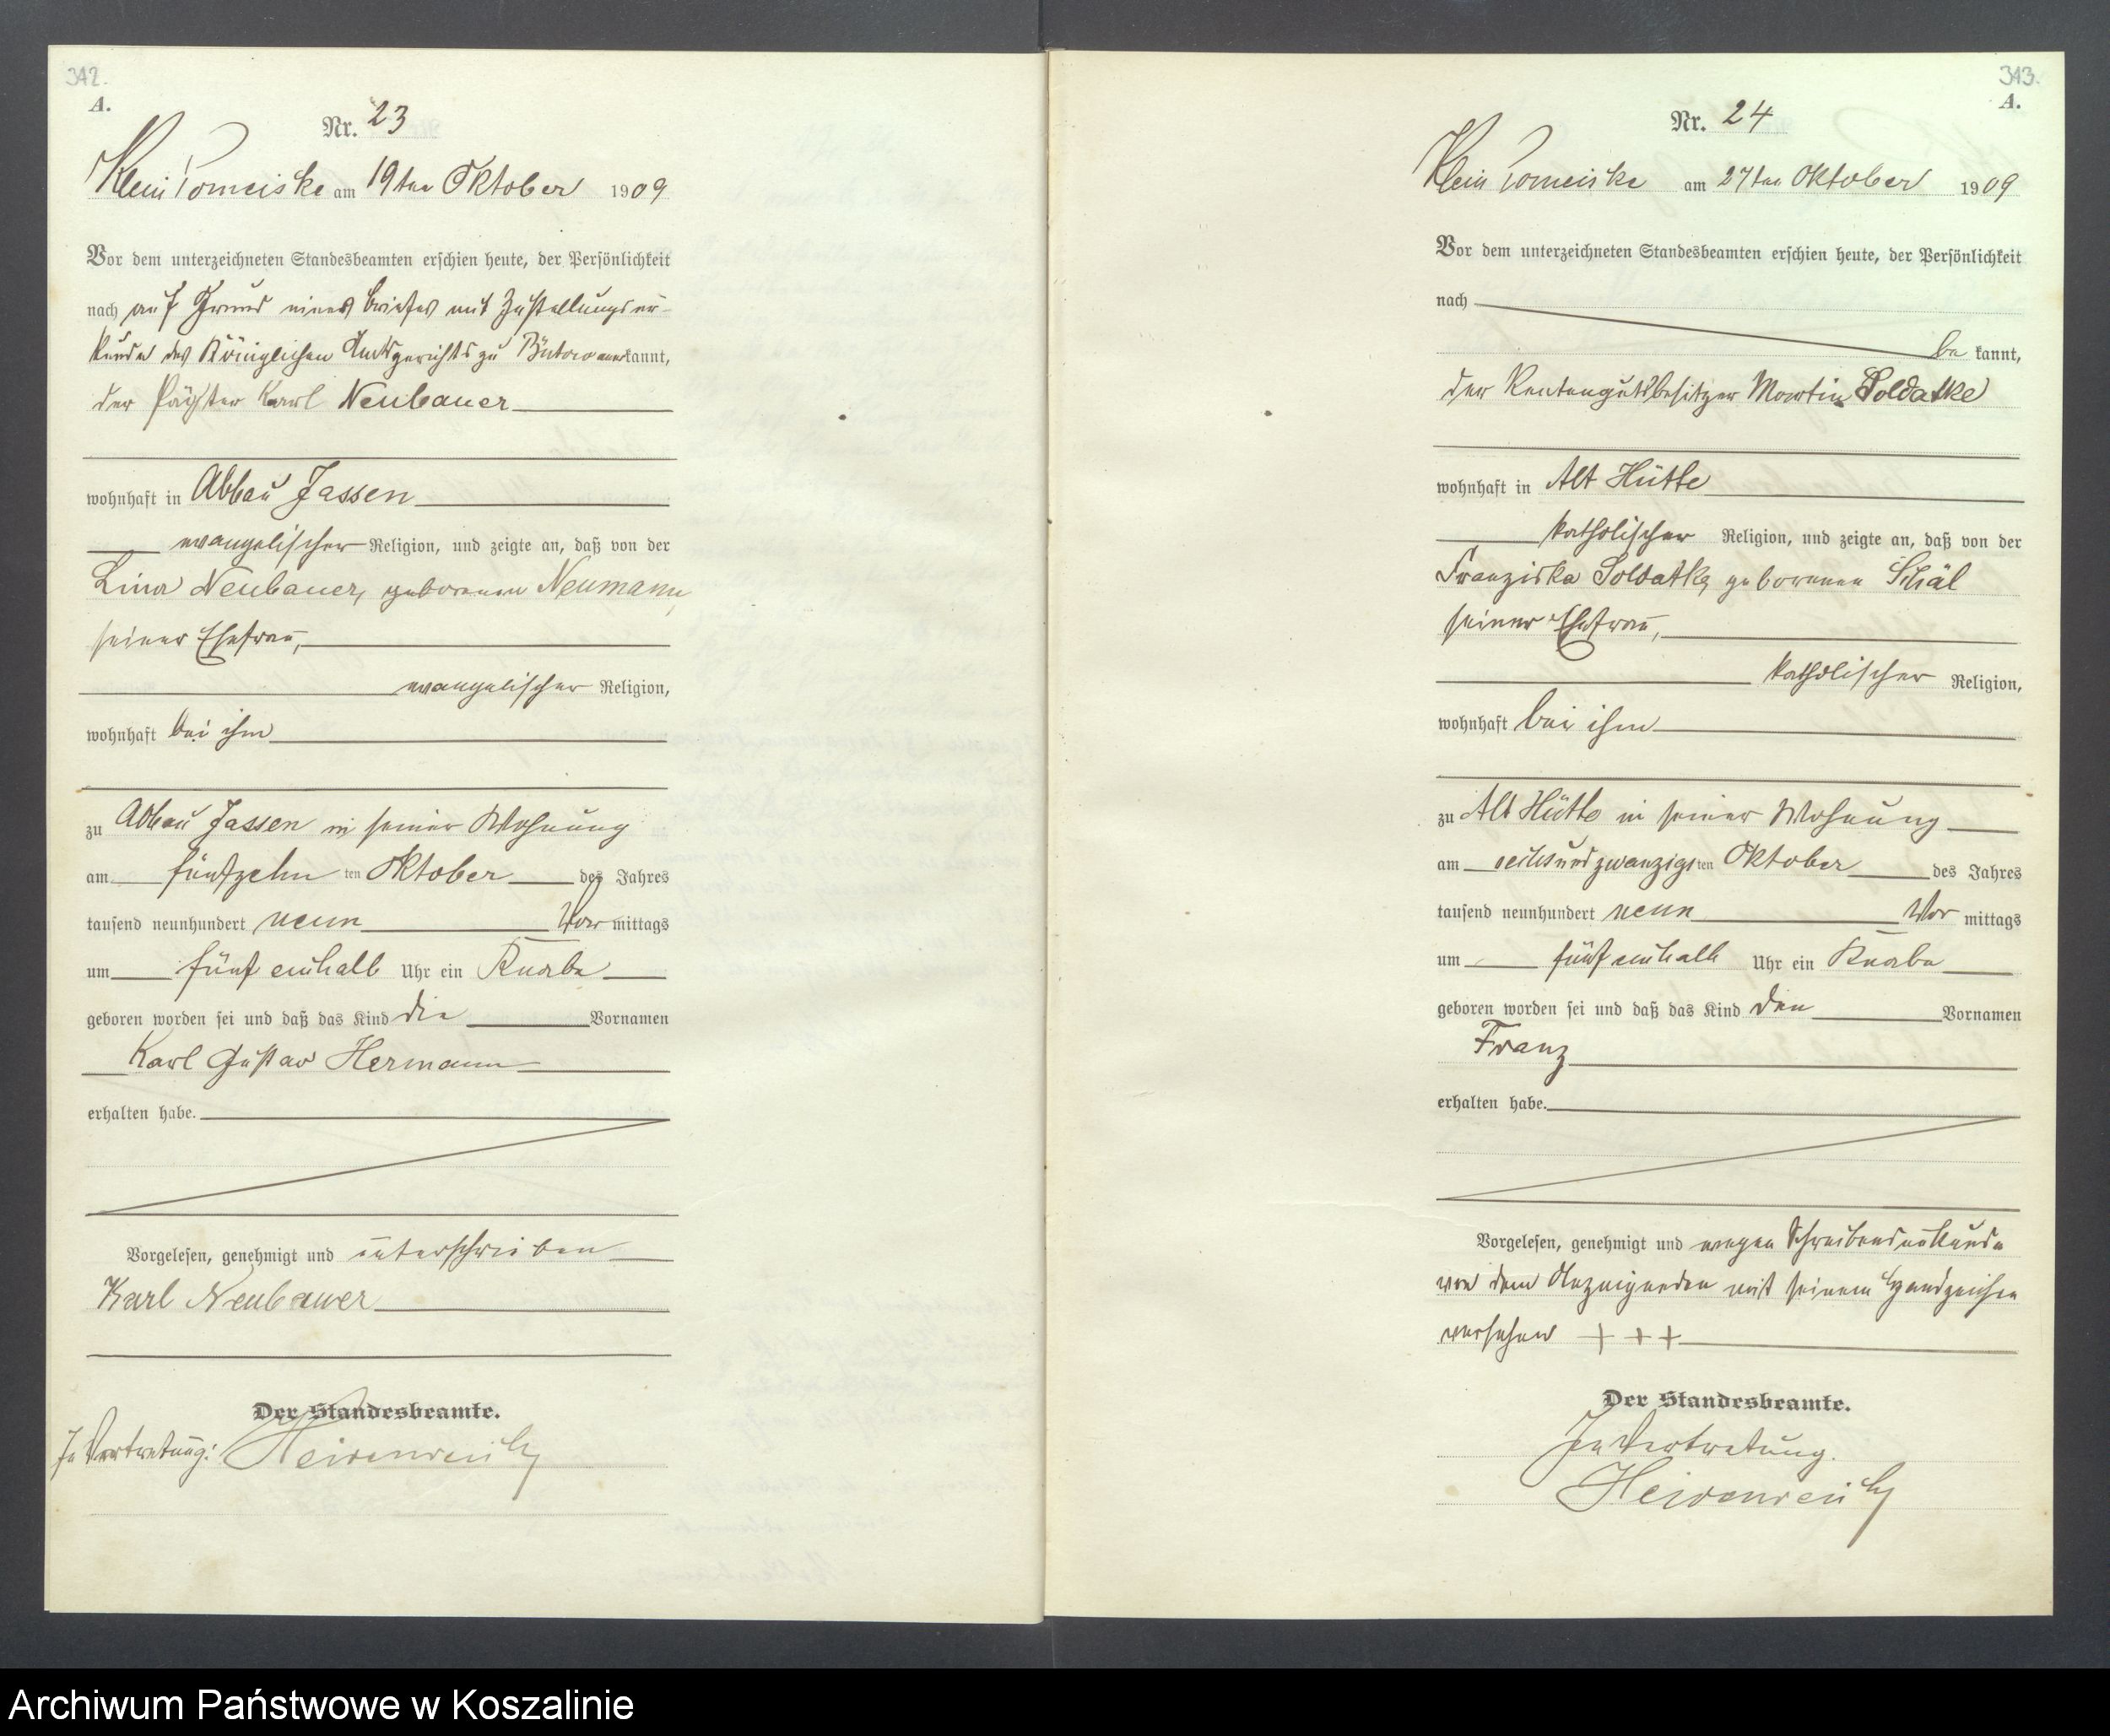 342.
A.
Nr. 23
Klein Pomeiske am 19ten Oktober 1909
Vor dem unterzeichneten Standesbeamten erschien heute, der Persönlichkeit
nach auf Grund eines Briefes mit Zustellungsur-
kunde des Königlichen Amtsgerichts zu Bütow anerkannt,
der Pächter Karl Neubauer
wohnhaft in Abbau Jassen
evangelischer Religion, und zeigte an, daß von der
Lina Neubauer, geborenen Neumann,
seiner Ehefrau,
evangelischer Religion,
wohnhaft bei ihm
zu Abbau Jassen in seiner Wohnung
am fünfzehn ten Oktober des Jahres
tausend neunhundert neun Vor mittags
um fünf einhalb Uhr ein Knabe
geboren worden sei und daß das Kind die Vornamen
Karl Gustav Hermann
erhalten habe.
Vorgelesen, genehmigt und unterschrieben
Karl Neubauer
Der Standesbeamte.
In Vertretung: Heidenreich
313.
A.
Nr. 24
Klein Pomeiske am 27ten Oktober 1909
Vor dem unterzeichneten Standesbeamten erschien heute, der Persönlichkeit
nach
be kannt,
der Rentengutsbesitzer Martin Soldatke
wohnhaft in Alt Hütte
katholischer Religion, und zeigte an, daß von der
Franziska Soldatke, geborenen
seiner Ehefrau,
katholischer Religion,
wohnhaft bei ihm
zu Alt Hütte in seiner Wohnung
am sechsundzwanzigsten Oktober des Jahres
tausend neunhundert neun Vor mittags
um fünf einhalb Uhr ein Knabe
geboren worden sei und daß das Kind den Vornamen
Franz
erhalten habe.
Vorgelesen, genehmigt und wegen Schreibensunkunde
von dem Anzeigenden mit seinem Handzeichen
versehen + + +
Der Standesbeamte.
In Vertretung.
Heidenreich
Archiwum Państwowe w Koszalinie